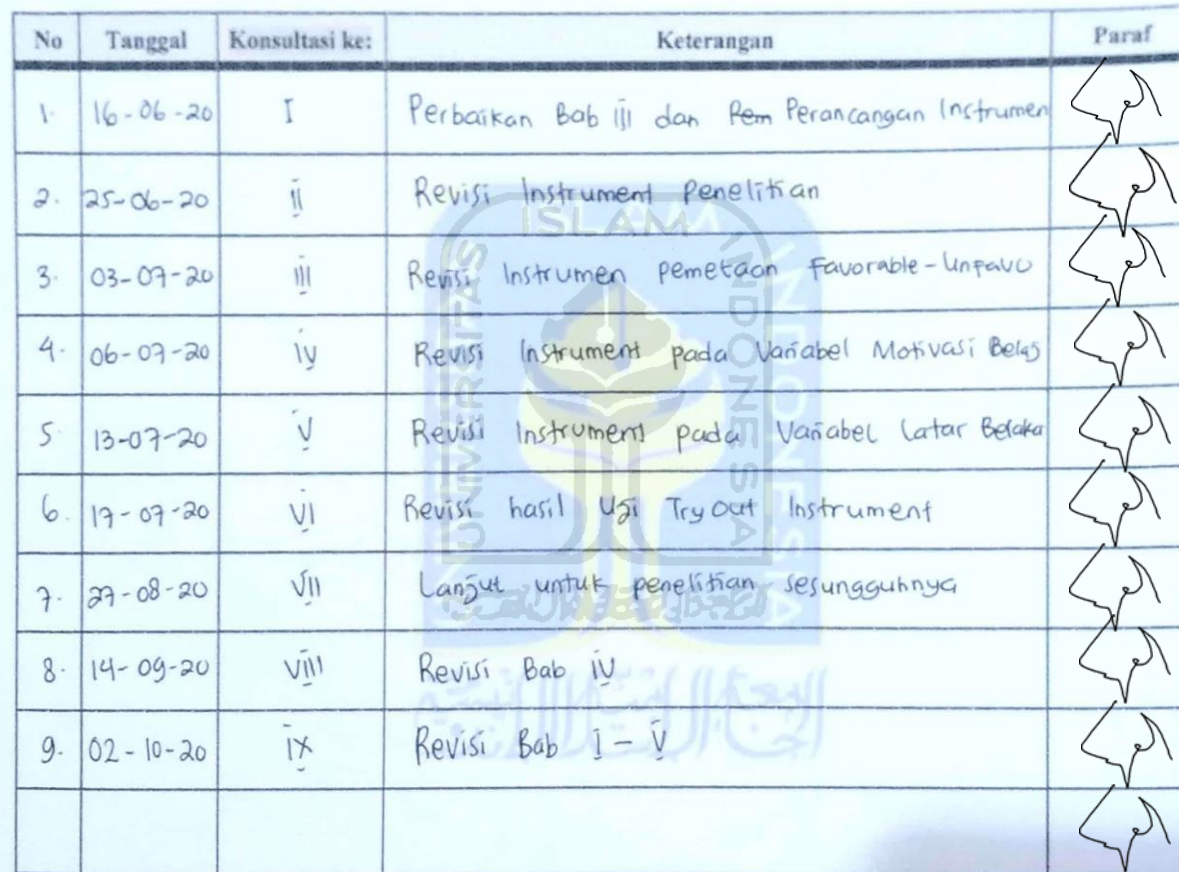 No Tanggal Konsultasi ke: Keterangan Paraf
1. 16-06-20 I Perbaikan Bab III dan Pem Perancangan Instrumen
2. 25-06-20 II Revisi Instrument Penelitian
3. 03-07-20 III Revisi Instrumen pemetaan Favorable-Unfavo
4. 06-07-20 IV Revisi Instrument pada Variabel Motivasi Belaj
5. 13-07-20 V Revisi Instrument pada Variabel Latar Belaka
6. 17-07-20 VI Revisi hasil Uji Try Out Instrument
7. 27-08-20 VII Lanjut untuk penelitian sesungguhnya
8. 14-09-20 VIII Revisi Bab IV
9. 02-10-20 IX Revisi Bab I - V
UNIVERSITAS ISLAM INDONESIA